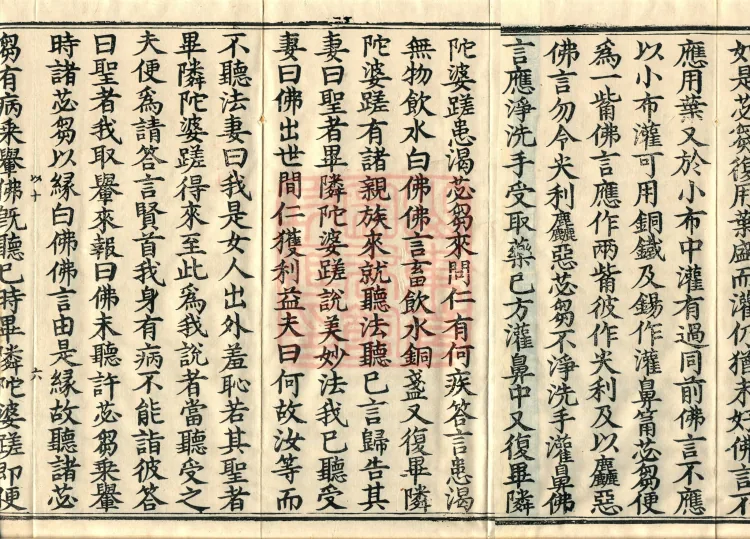 如是苾芻復用葉盛而灌仍猶未好佛言不
應用葉又於小布中灌有過同前佛言不應
以小布灌可用銅鐵及錫作灌鼻筩苾芻便
為一觜佛言應作兩觜彼作尖利及以麤惡
佛言勿令尖利麤惡苾芻不淨洗手灌鼻佛
言應淨洗手受取藥已方灌鼻中又復畢隣
陀婆蹉患渴苾芻來問仁有何疾答言患渴
無物飲水白佛佛言畜飲水銅盞又復畢隣
陀婆蹉有諸親族來就聽法聽已言歸告其
妻曰聖者畢隣陀婆蹉說美妙法我已聽受
妻曰佛出世間仁獲利益夫曰何故汝等而
不聽法妻曰我是女人出外羞恥若其聖者
畢隣陀婆蹉得來至此為我說者當聽受之
夫便為請答言賢首我身有病不能詣彼答
曰聖者我取轝來報曰佛未聽許苾芻乘轝
時諸苾芻以緣白佛佛言由是緣故聽諸苾
芻有病乘轝佛旣聽已時畢隣陀婆蹉即便
六